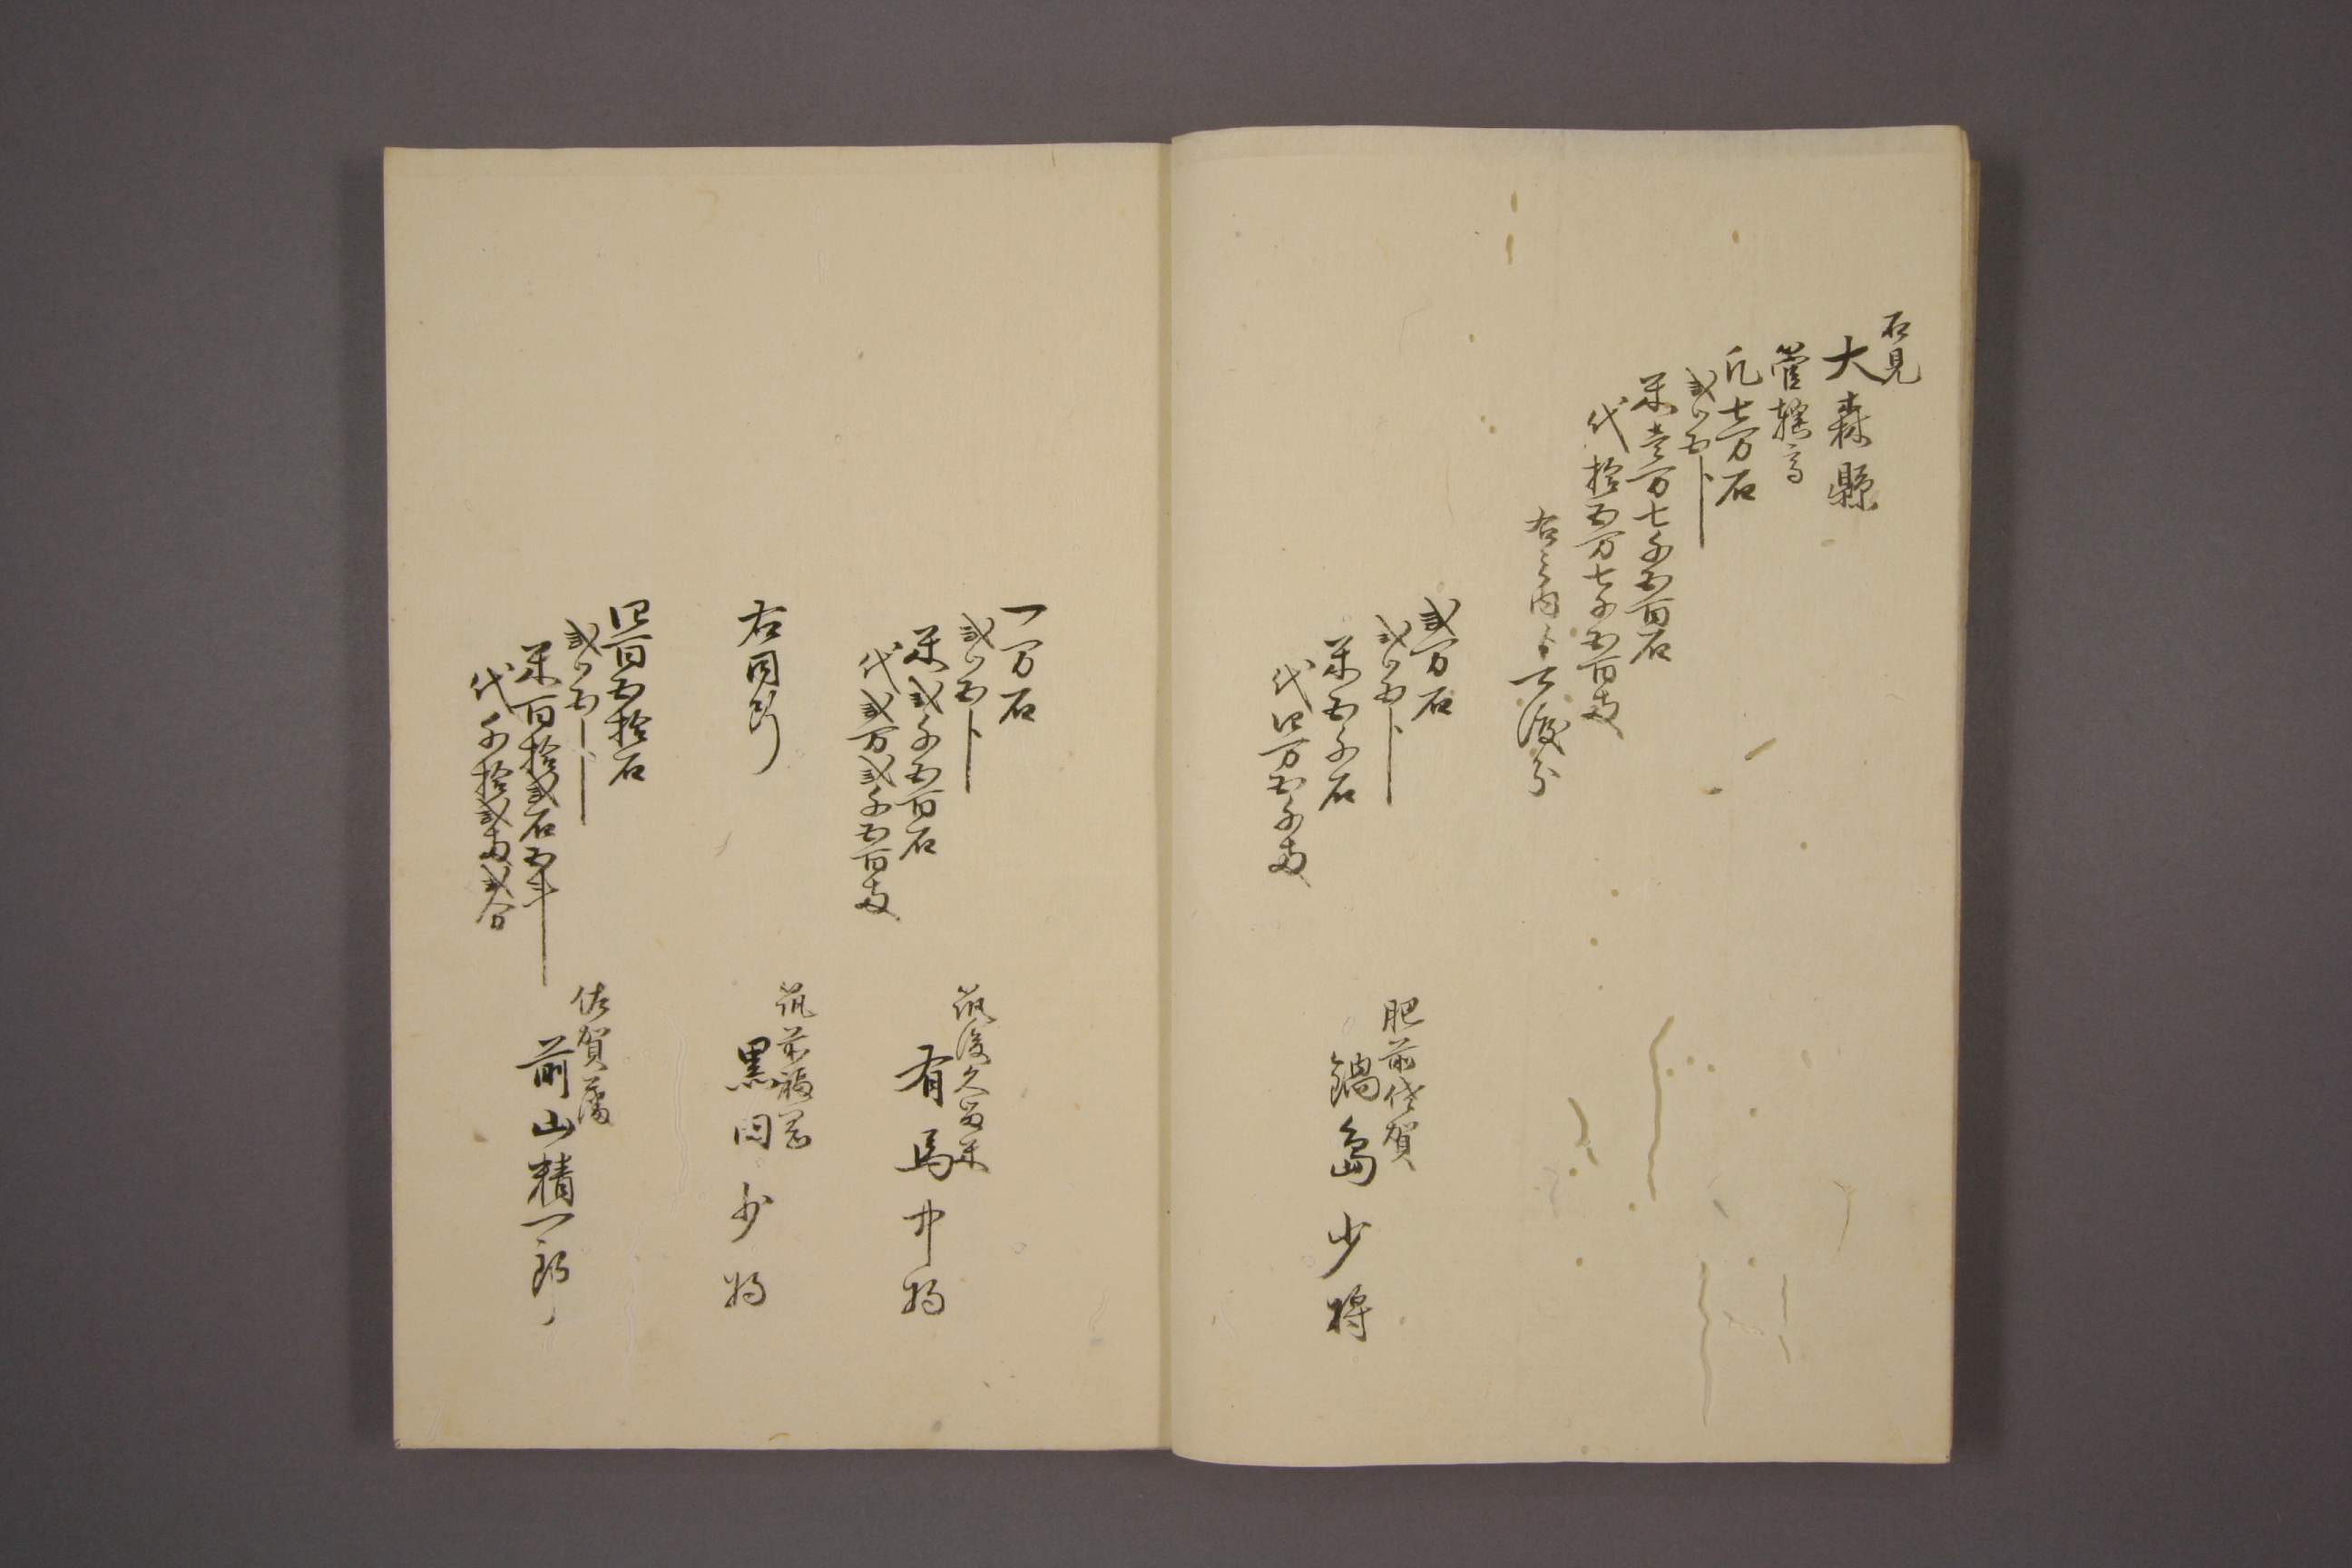 石見
大森縣
管轄高
凡七万石
弐ツ五ト
米壱万七千五百石
代拾五万七千五百両
右之内ゟ下渡分
弐万石
弐ツ五ト
米五千石
代四万五千両
肥前佐賀
鍋島少将
一万石
弐ツ五ト
米弐千五百石
代弐万弐千五百両
筑後久留米
有馬中将
右同断
筑前福岡
黒田少将
四百五拾石
弐ツ五ト
米百拾弐石五斗
代千拾弐両弐分
佐賀藩
前山精一郎